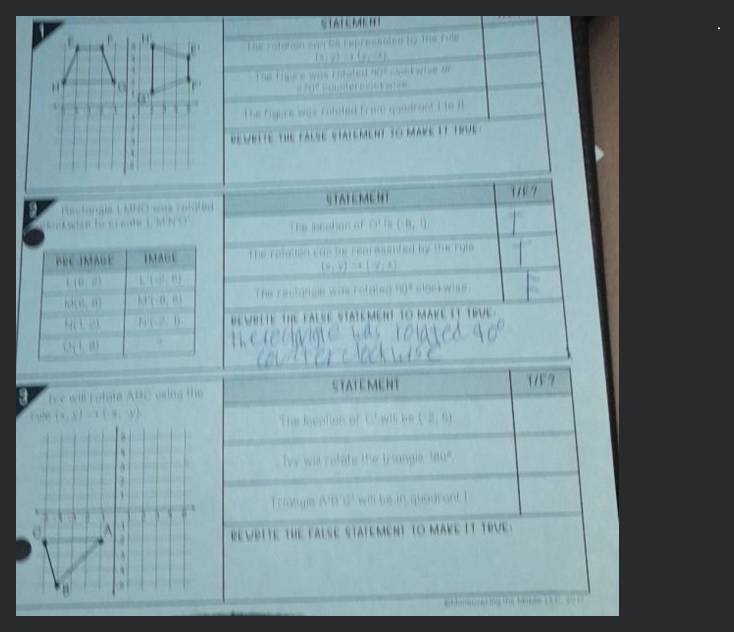 1
STATEMENT
The rotation can be represented by the rule
(x, y) → (y, -x).
The figure was rotated 90° clockwise or
270° counterclockwise.
The figure was rotated from quadrant I to II.
REWRITE THE FALSE STATEMENT TO MAKE IT TRUE:
2
Rectangle LMNO was rotated
clockwise to create L'M'N'O'.
PRE-IMAGE IMAGE
L(6, 2) L'(-2, 6)
M(6, 8) M'(-8, 6)
N(1, 2) N'(-2, 1)
O(1, 8)
STATEMENT T/F?
The location of O' is (-8, 1). T
The rotation can be represented by the rule
(x, y) → (-y, x). T
The rectangle was rotated 90° clockwise. F
REWRITE THE FALSE STATEMENT TO MAKE IT TRUE:
the rectangle was rotated 90°
counterclockwise
3
Ivy will rotate ABC using the
rule (x, y) → (-x, -y).
C A
B
STATEMENT T/F?
The location of C' will be (-2, 5).
Ivy will rotate the triangle 180°.
Triangle A'B'C' will be in quadrant I.
REWRITE THE FALSE STATEMENT TO MAKE IT TRUE:
©Maneuvering the Middle LLC, 2017